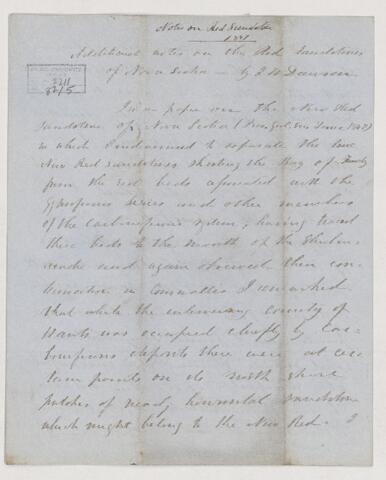 Notes on Red Sandstone
1851
Additional notes on the Red Sandstones
of Nova Scotia — by J W Dawson
2211
82/5
In a paper on the New Red
sandstone of Nova Scotia (
in which I endeavoured to separate the true
New Red sandstones skirting the Bay of Fundy
from the red beds associated with the
Gypsiferous series and other members
of the Carboniferous system; having traced
these beds to the mouth of the Shuben-
acadie and again observed their con-
tinuation in Cornwallis I remarked
that while the intervening county of
Hants was occupied chiefly by Car-
boniferous deposits there were at cer-
tain points on its north shore
patches of nearly horizontal sandstone
which might belong to the New Red. I